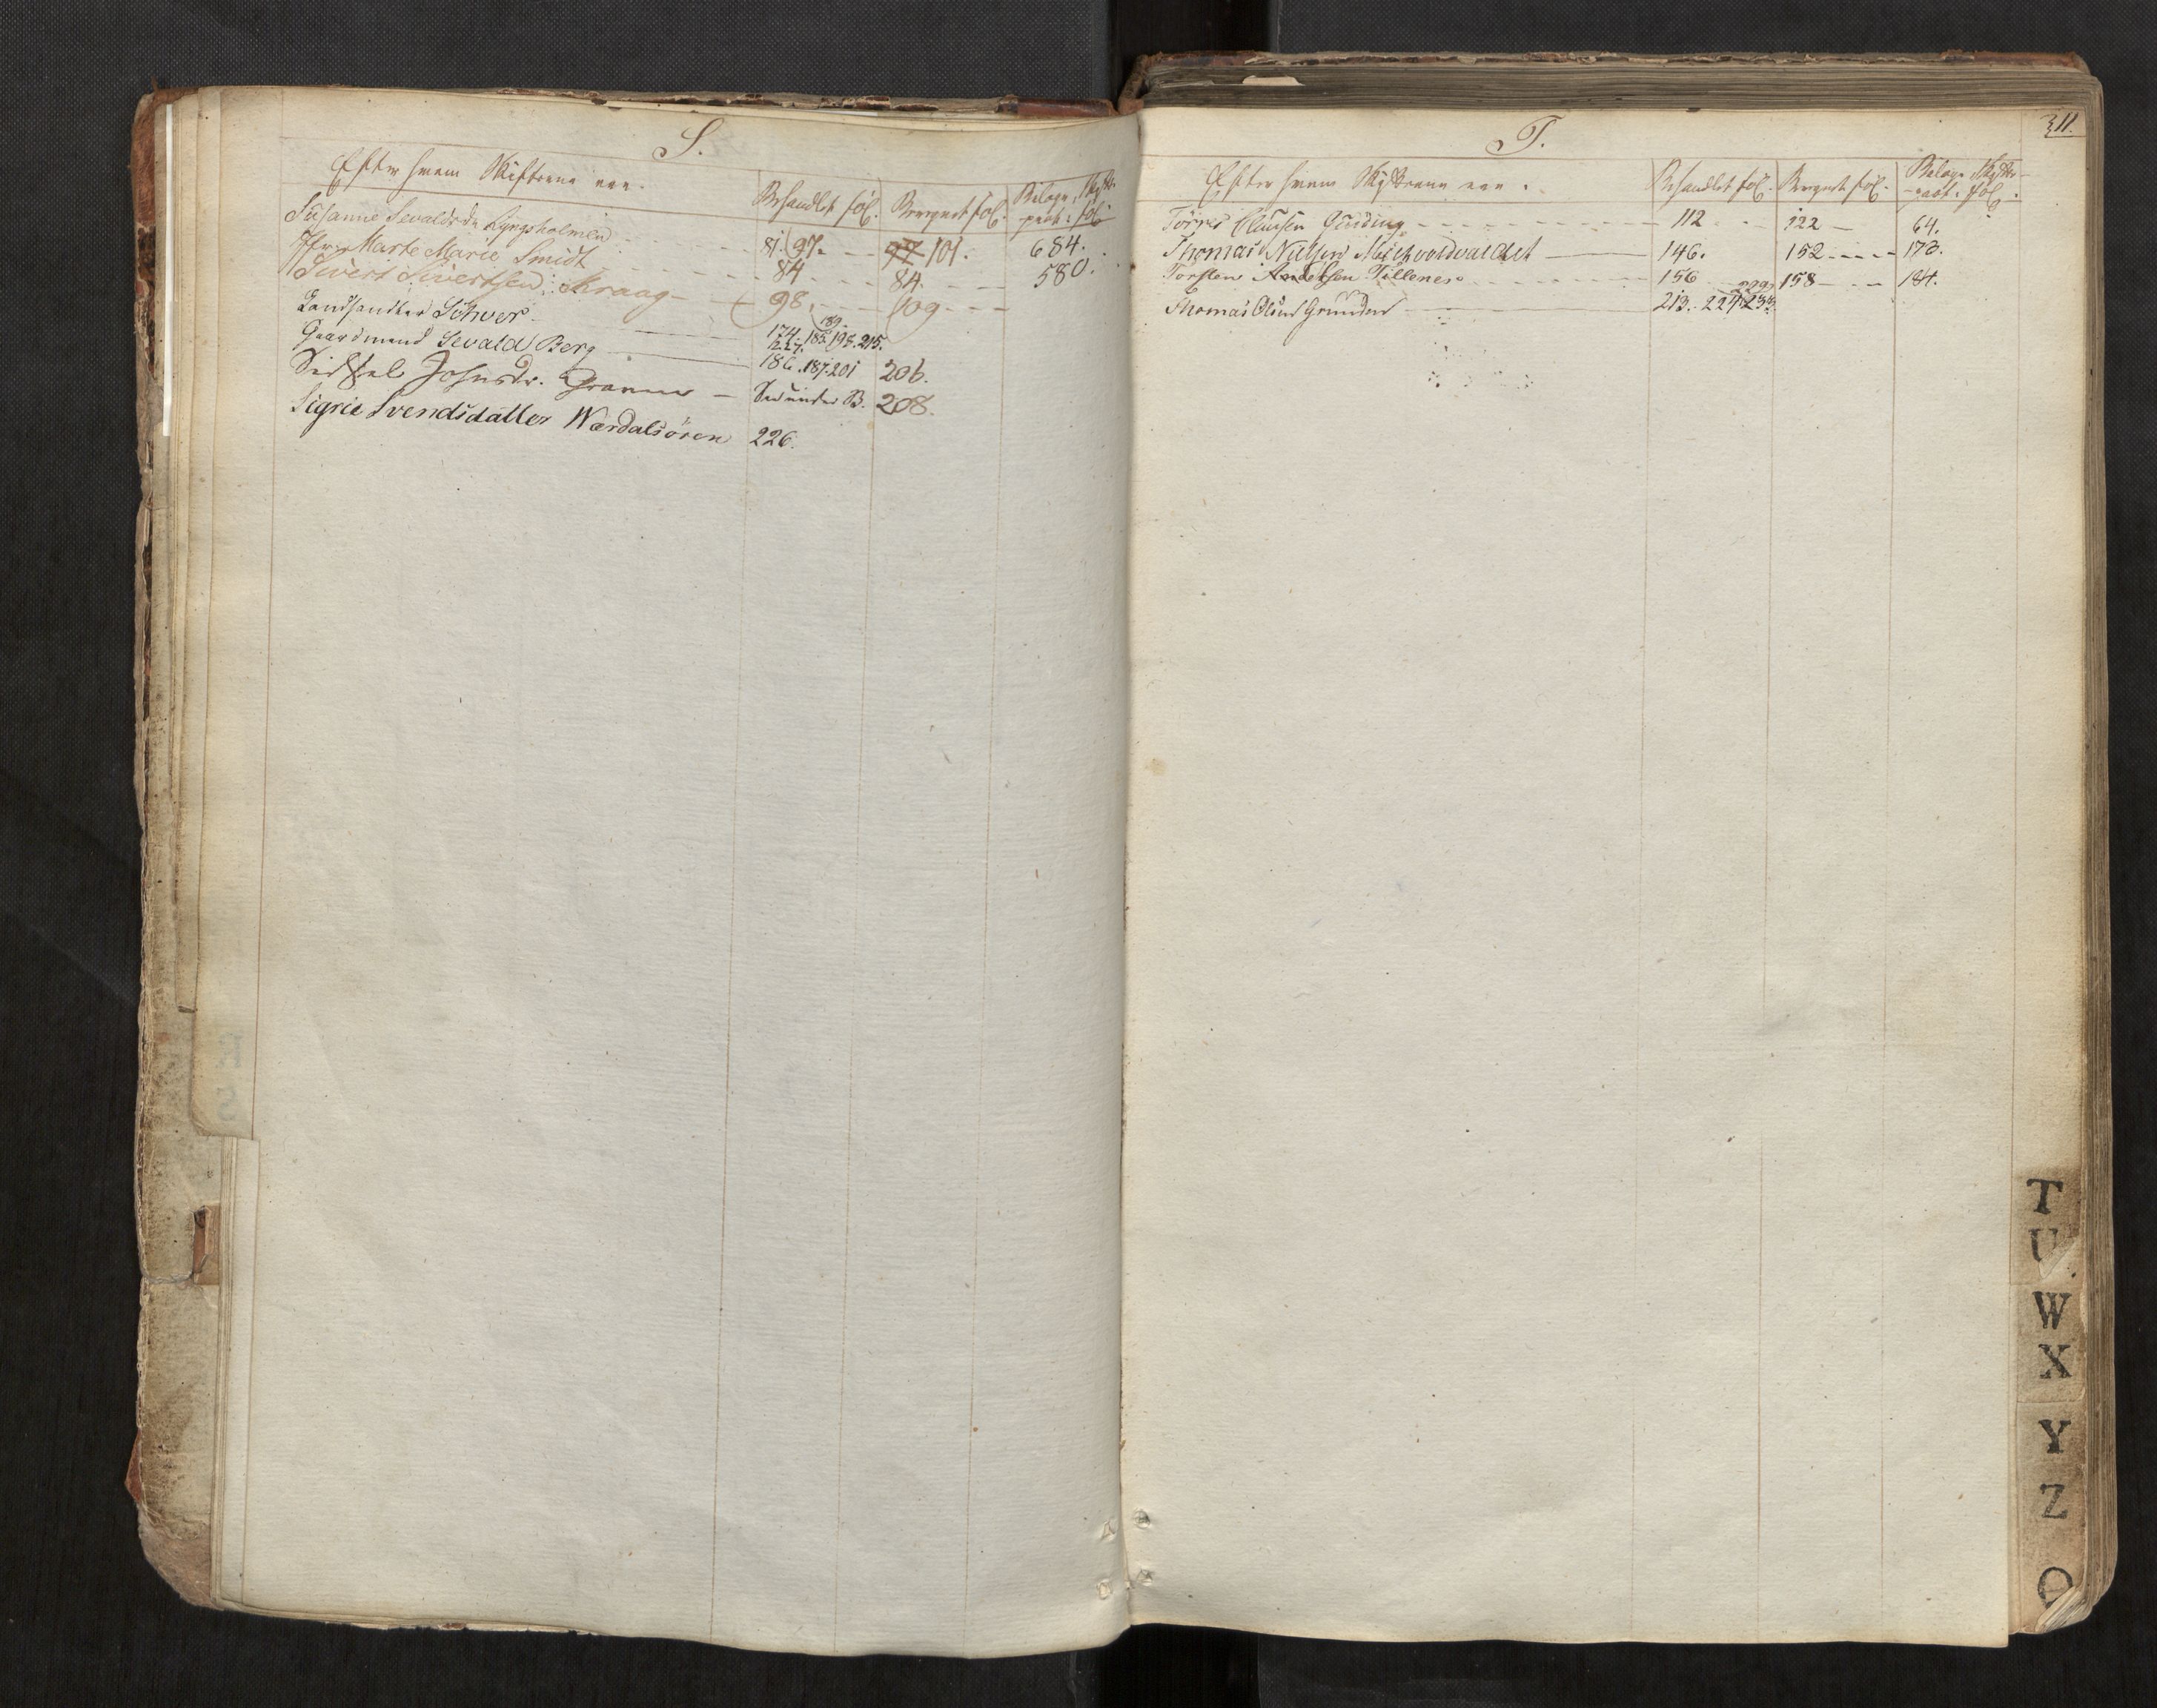 S.
Efter hvem Skifterne ere.
Behandlet fol. Beregnet fol. Bilage, Skifte-
prot: fol
Susanne Sevaldsdr Lyngsholmen 81. 97. 101. 684.
Jfr Marte Marie Smidt 84 84. 580.
Sivert Sivertsen Kraag 98. 109
Landhandler Schver 174. 185. 189. 198. 215.
227.
Gaardmand Sevald Berg 186. 187. 201 206.
Sidsel Johnsdr. Gran Se under B. 208.
Sigrie Svendsdatter Wærdalsören 226.
T. 311.
Efter hvem Skifterne ere.
Behandlet fol. Beregnet fol. Bilage, Skifte-
prot: fol.
Törris Clausen 112 122 64.
Thomas Nielsen 146. 152 173.
Torsten Andersen Tillenes 156 158 184.
Thomas Olsen Grunden 213. 224. 229. 233.
T
U
W
X
Y
Z